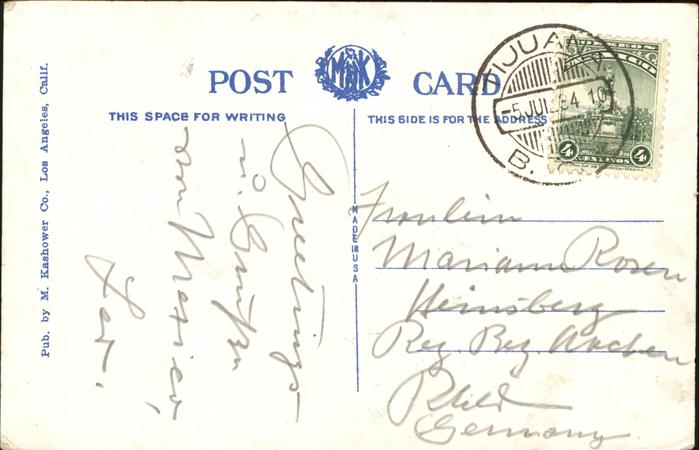 Pub. by M. Kashower Co., Los Angeles, Calif.
POST CARD
MK
THIS SPACE FOR WRITING
THIS SIDE IS FOR THE ADDRESS
MADE IN USA
TIJUANA
5 JUL 34 10
B.
4 CENTAVOS 4
Greetings
u. Grüße
von Mexico,
Fräulein
Mariann Rosen
Heinsberg
Reg Bez. Aachen
Rhld
Germany